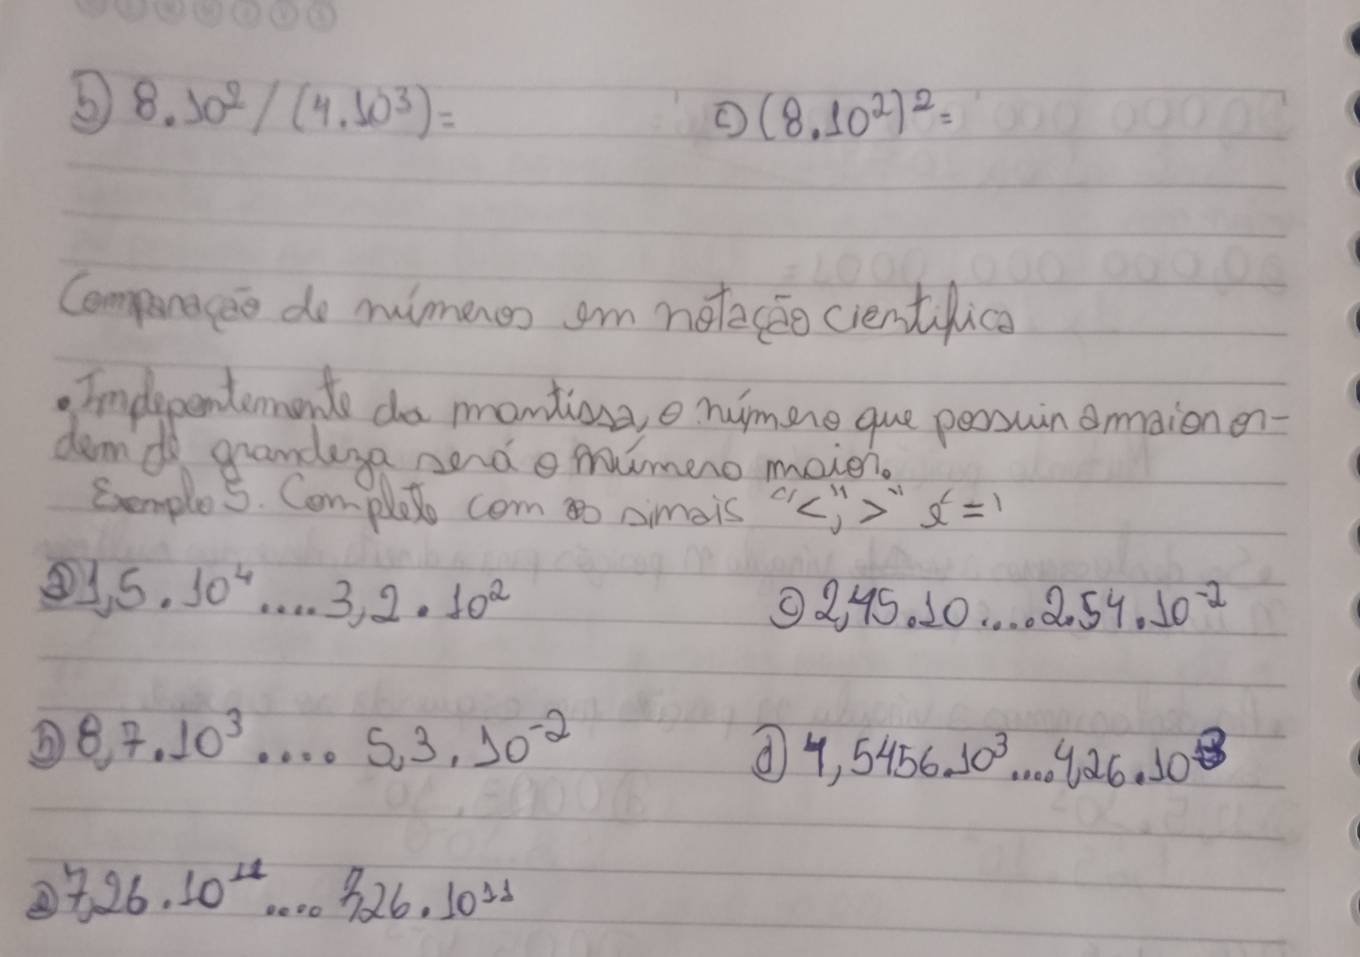 b) 8.10² / (4.10³) =
c) (8.10²)² =
Comparação de números em notação científica
• Indepentemente da mantissa, o número que possuir a maior or-
dem de grandeza será o número maior.
Exemplo 5. Complete com os sinais "<", ">" e "="
a) 1,5.10⁴ .... 3,2.10²
c) 2,45.10 .... 2.54.10⁻²
b) 8,7.10³ .... 5,3.10⁻²
d) 4,5456.10³ .... 4,26.10³
e) 7,26.10¹¹ .... 7,26.10¹¹